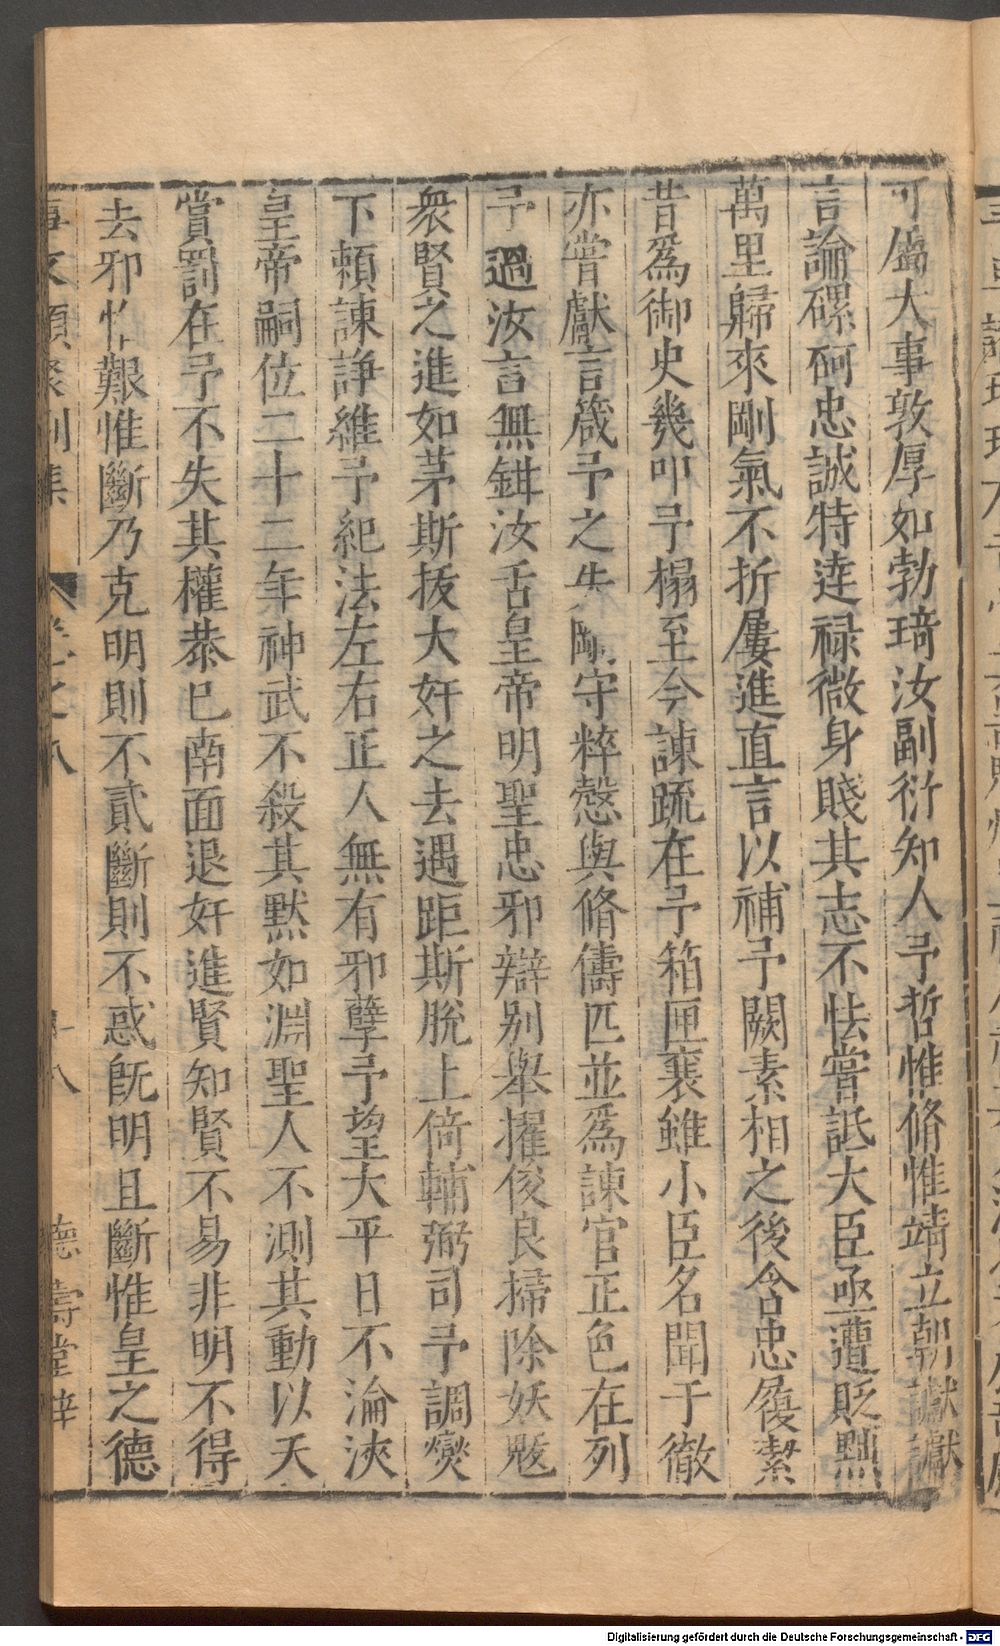 可屬大事敦厚如勃琦汝副衍知人予哲惟脩惟靖立朝讞讞
言論磥砢忠誠特達祿微身賤其志不怯嘗詆大臣亟遭貶黜
萬里歸來剛氣不折屢進直言以補予闕素相之後含忠履潔
昔爲御史幾叩予榻至今諫疏在予箱匣襄雖小臣名聞于徹
亦嘗獻言箴予之失剛守粹慤與脩儔匹並爲諫官正色在列
予過汝言無鉗汝舌皇帝明聖忠邪辯别舉擢俊良掃除妖魃
衆賢之進如茅斯拔大奸之去遇距斯脫上倚輔弼司予調燮
下賴諫諍維予紀法左右正人無有邪孽予望大平日不淪浹
皇帝嗣位二十二年神武不殺其默如淵聖人不測其動以天
賞罰在予不失其權恭巳南面退奸進賢知賢不易非明不得
去邪惟艱惟斷乃克明則不貳斷則不惑旣明且斷惟皇之德
事文類聚別集 卷之八 十八 德壽堂梓
Digitalisierung gefördert durch die Deutsche Forschungsgemeinschaft - DFG